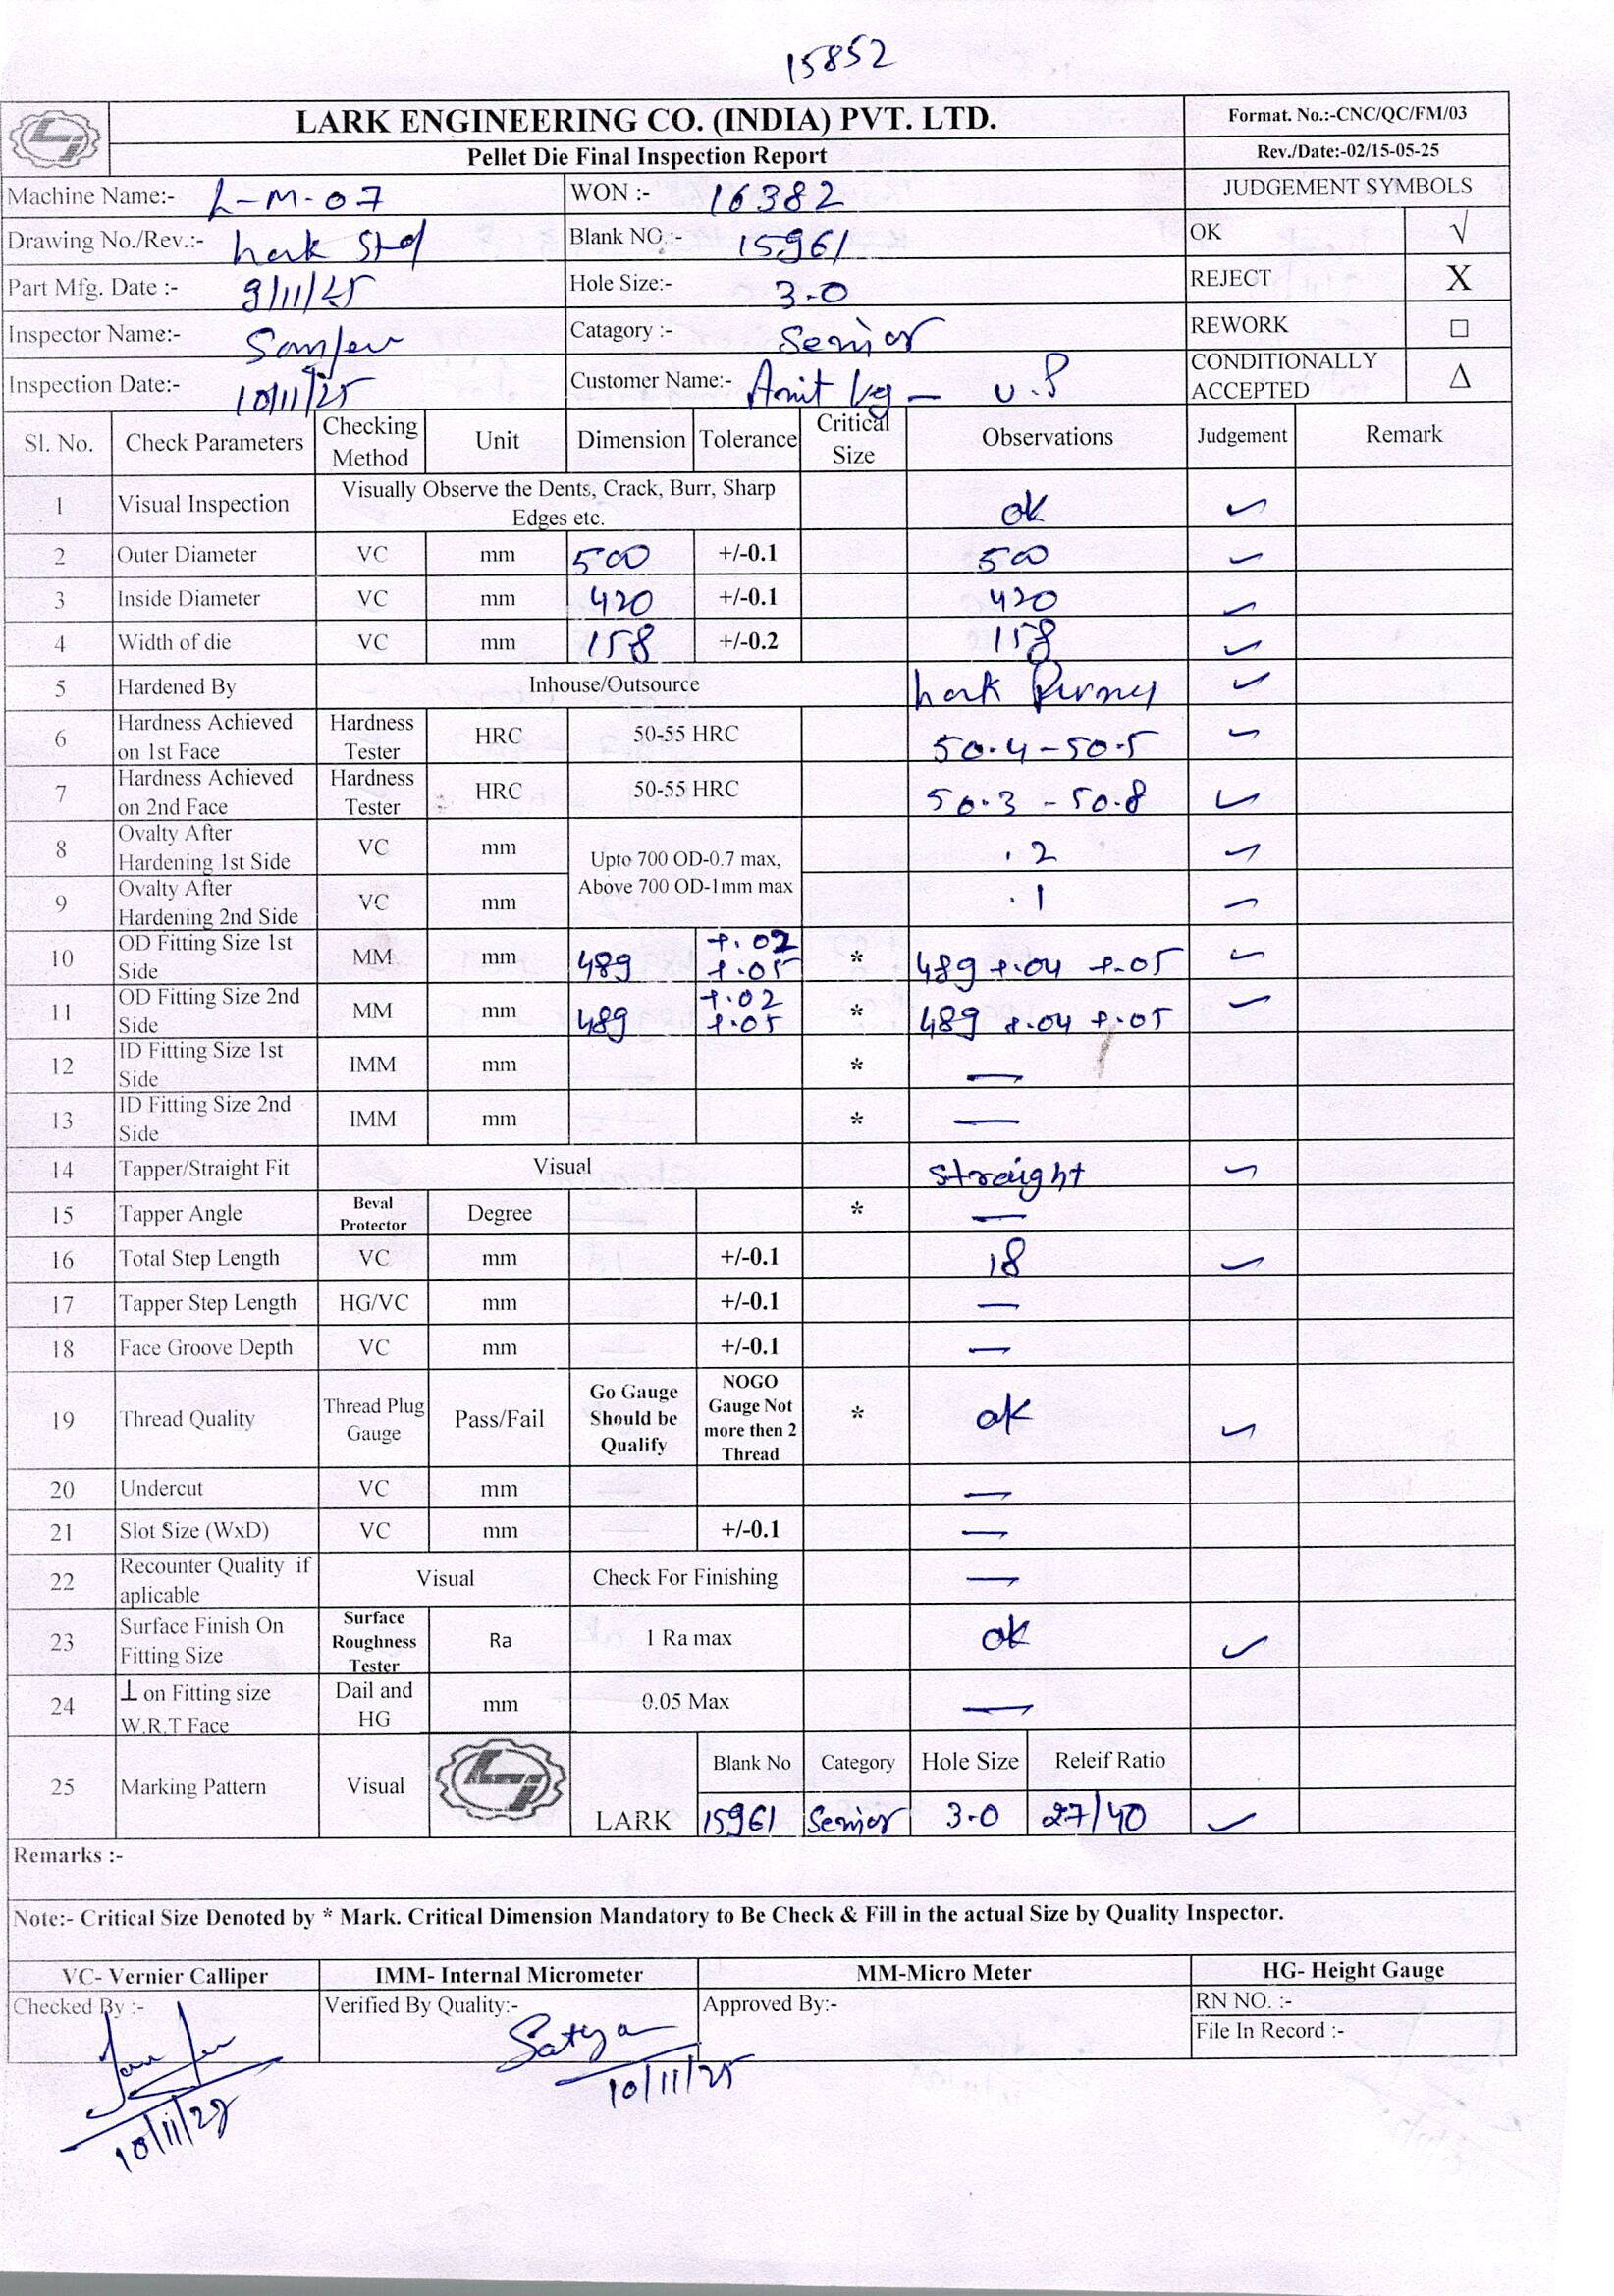 15852
LARK ENGINEERING CO. (INDIA) PVT. LTD.
Format. No.:-CNC/QC/FM/03
Pellet Die Final Inspection Report
Rev./Date:-02/15-05-25
Machine Name:- L-M-07 WON :- 16382 JUDGEMENT SYMBOLS
Drawing No./Rev.:- Lark Std Blank NO.:- 15961 OK √
Part Mfg. Date :- 9/11/25 Hole Size:- 3.0 REJECT X
Inspector Name:- Catagory :- Senior REWORK □
Inspection Date:- 10/11/25 Customer Name:- Amit kg - U.P CONDITIONALLY ACCEPTED Δ
Sl. No. Check Parameters Checking Method Unit Dimension Tolerance Critical Size Observations Judgement Remark
1 Visual Inspection Visually Observe the Dents, Crack, Burr, Sharp Edges etc. ok ✓
2 Outer Diameter VC mm 500 +/-0.1 500 ✓
3 Inside Diameter VC mm 420 +/-0.1 420 ✓
4 Width of die VC mm 158 +/-0.2 158 ✓
5 Hardened By Inhouse/Outsource Lark ✓
6 Hardness Achieved on 1st Face Hardness Tester HRC 50-55 HRC 50.4-50.5 ✓
7 Hardness Achieved on 2nd Face Hardness Tester HRC 50-55 HRC 50.3 - 50.8 ✓
8 Ovalty After Hardening 1st Side VC mm Upto 700 OD-0.7 max, Above 700 OD-1mm max .2 ✓
9 Ovalty After Hardening 2nd Side VC mm .1 ✓
10 OD Fitting Size 1st Side MM mm 489 +.02 +.05 * 489 +.04 +.05 ✓
11 OD Fitting Size 2nd Side MM mm 489 +.02 +.05 * 489 +.04 +.05 ✓
12 ID Fitting Size 1st Side IMM mm * —
13 ID Fitting Size 2nd Side IMM mm * —
14 Tapper/Straight Fit Visual straight ✓
15 Tapper Angle Beval Protector Degree * —
16 Total Step Length VC mm +/-0.1 18 ✓
17 Tapper Step Length HG/VC mm +/-0.1 —
18 Face Groove Depth VC mm +/-0.1 —
19 Thread Quality Thread Plug Gauge Pass/Fail Go Gauge Should be Qualify NOGO Gauge Not more then 2 Thread * ok ✓
20 Undercut VC mm —
21 Slot Size (WxD) VC mm +/-0.1 —
22 Recounter Quality if aplicable Visual Check For Finishing —
23 Surface Finish On Fitting Size Surface Roughness Tester Ra 1 Ra max ok ✓
24 ⊥ on Fitting size W.R.T Face Dail and HG mm 0.05 Max —
25 Marking Pattern Visual LARK Blank No Category Hole Size Releif Ratio
15961 Senior 3.0 27/40 ✓
Remarks :-
Note:- Critical Size Denoted by * Mark. Critical Dimension Mandatory to Be Check & Fill in the actual Size by Quality Inspector.
VC- Vernier Calliper IMM- Internal Micrometer MM-Micro Meter HG- Height Gauge
Checked By :- Verified By Quality:- Approved By:- RN NO. :-
Satya File In Record :-
10/11/25